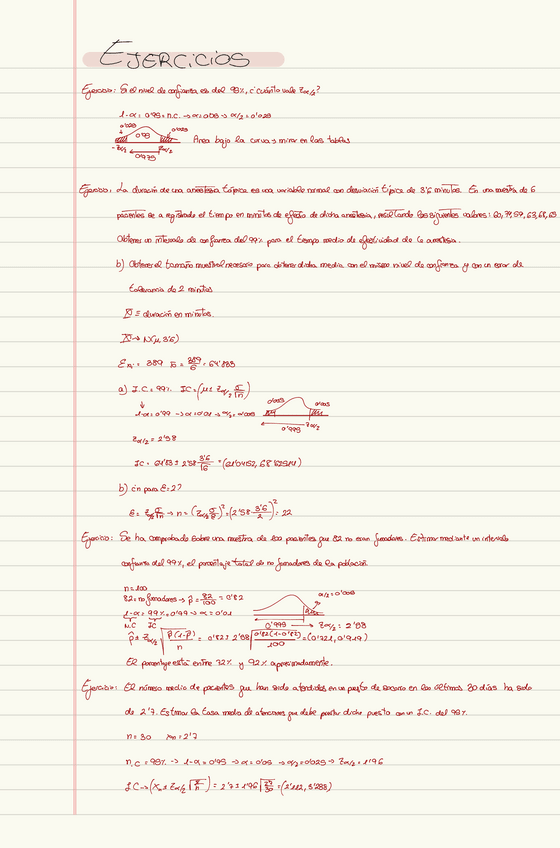 EJERCICIOS
Ejercicio: Si el nivel de confianza es del 95%, ¿cuánto vale Zα/2?
1-α = 0'95 = n.c. → α = 0'05 → α/2 = 0'025
0'025 0'95 0'025
-Zα/2 Zα/2 Área bajo la curva → mirar en las tablas
0'975
Ejercicio: La duración de una anestesia tópica es una variable normal con desviación típica de 3'6 minutos. En una muestra de 6
pacientes se a registrado el tiempo en minutos de efecto de dicha anestesia, resultando los siguientes valores: 60, 77, 57, 63, 68, 65.
Obtener un intervalo de confianza del 99% para el tiempo medio de efectividad de la anestesia.
b) Obtener el tamaño muestral necesario para obtener dicha media con el mismo nivel de confianza y con un error de
tolerancia de 2 minutos
X ≡ duración en minutos.
X → N(μ, 3'6)
= 389 = 389/6 = 64'833
a) I.C = 99% IC = (μ ± Zα/2 σ/√n)
1-α = 0'99 → α = 0'01 → α/2 = 0'005
0'005 0'005
0'995 Zα/2
Zα/2 = 2'58
IC = 64'83 ± 2'58 3'6/√6 =
b) ¿n para ε = 2?
ε = Zα/2 σ/√n → n = (Zα/2 σ/ε)² = (2'58 · 3'6/2)² = 22
Ejercicio: Se ha comprobado sobre una muestra de 100 pacientes que 82 no eran fumadores. Estimar mediante un intervalo
confianza del 99%, el porcentaje total de no fumadores de la población.
n = 100
82 = no fumadores → p̂ = 82/100 = 0'82
α/2 = 0'005
1-α = 99% = 0'99 → α = 0'01
N.C I.C
0'995 → Zα/2 = 2'58
p̂ ± Zα/2 √(p̂(1-p̂)/n) = 0'82 ± 2'58 √(0'82(1-0'82)/100) = (0'721, 0'919)
El porcentaje está entre 72% y 92% aproximadamente.
Ejercicio: El número medio de pacientes que han sido atendidos en un puesto de socorro en los últimos 30 días ha sido
de 2'7. Estimar la tasa media de atenciones que debe prestar dicho puesto con un I.C. del 95%.
n = 30 = 2'7
n.c = 95% → 1-α = 0'95 → α = 0'05 → α/2 = 0'025 → Zα/2 = 1'96
= 2'7 ± 1'96 = (2'112, 3'288)